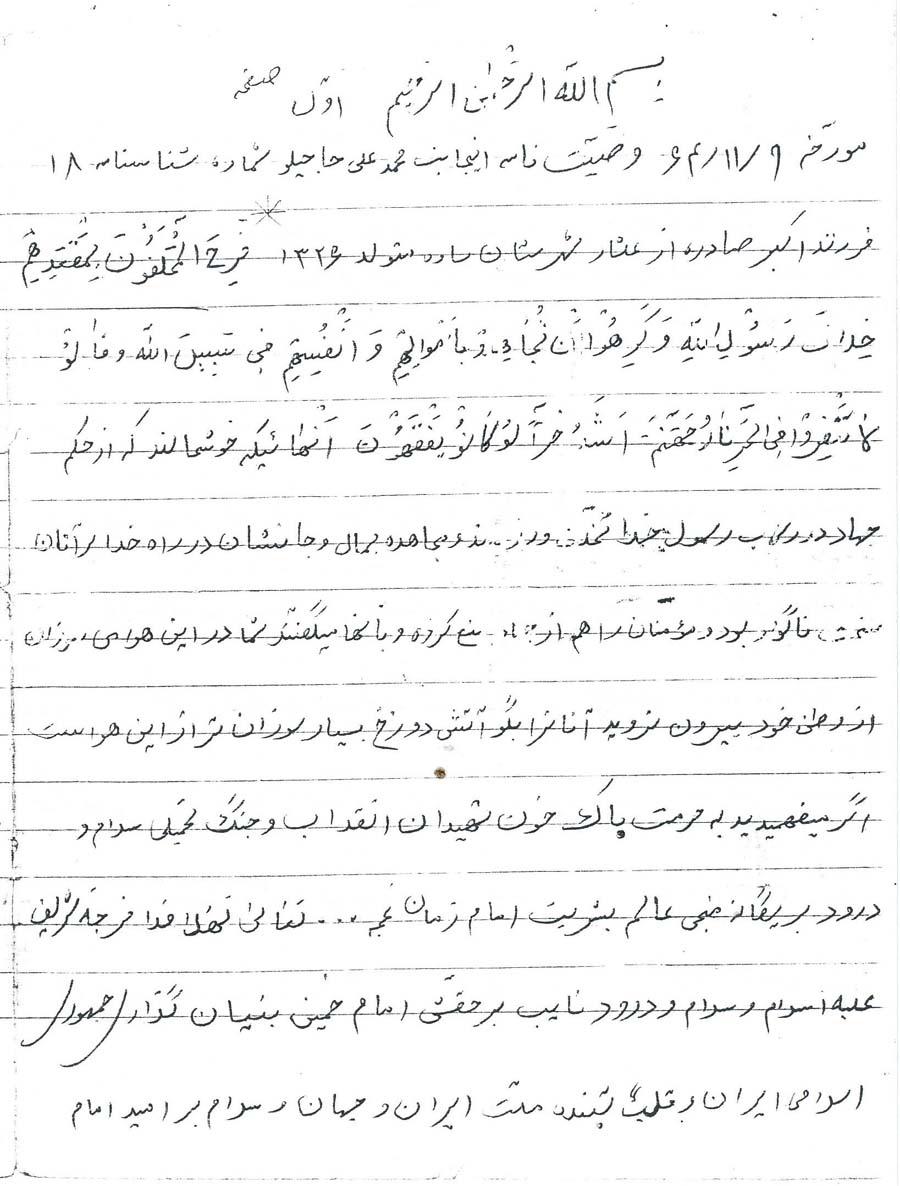 بسم الله الرحمن الرحیم اول صفحه
مورّخه ۶۴/۱۱/۹ وصیّت نامه اینجانب محمد علی حاجیلو شماره شناسنامه ۱۸
فرزند اکبر صادره از عشایر شهرستان ساوه متولد ۱۳۲۶ فَرِحَ المُخَلَّفُونَ بِمَقْعَدِهِمْ
خِلافَ رَسُولِ اللهِ وَ کَرِهُوا اَنْ یُجاهِدُوا بِاَمْوالِهِمْ وَ اَنْفُسِهِمْ فی سَبیلِ الله وَ قالُوْ
لا تَنْفِرُوا فِی الْحَرِّ نارُ جَهَنَّمَ اَشَدُّ حَرّاً لَوْ کانُوْ یَفْقَهُوْنَ آنهائیکه خوشحالند که از حکم
جهاد در رکاب رسول خدا تخلّف ورزیدند و مجاهده بمال و جانشان در راه خدا بر آنان
سخت ناگوار بود و مؤمنان را هم از جهاد منع کرده و بآنها میگفتند شما در این هوای سوزان
از وطن خود بیرون نروید آنانرا بگو آتش دوزخ بسیار سوزان تر از این هواست
اگر میفهمیدید به حرمت پاک خون شهیدان انقلاب و جنگ تحمیلی سلام و
درود بر یگانه منجی عالم بشریت امام زمان عج ... تعالی فرجه شریف
علیه اسلام و سلام و درود نایب بر حقش امام خمینی بنیان گذار جمهور
اسلامی ایران و قلب تپنده ملت ایران و جهان و سلام بر امید امام